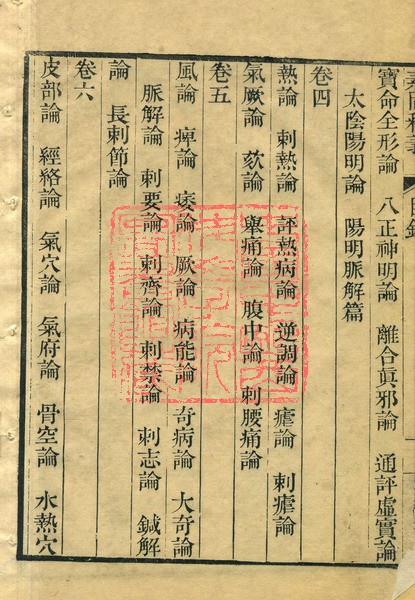 寶命全形論 八正神明論 離合眞邪論 通評虛實論
太陰陽明論 陽明脈解篇
卷四
熱論 刺熱論 評熱病論 逆調論 瘧論 刺瘧論
氣厥論 欬論 舉痛論 腹中論 刺腰痛論
卷五
風論 痺論 痿論 厥論 病能論 奇病論 大奇論
脈解論 刺要論 刺齊論 刺禁論 刺志論 鍼解
論 長刺節論
卷六
皮部論 經絡論 氣穴論 氣府論 骨空論 水熱穴